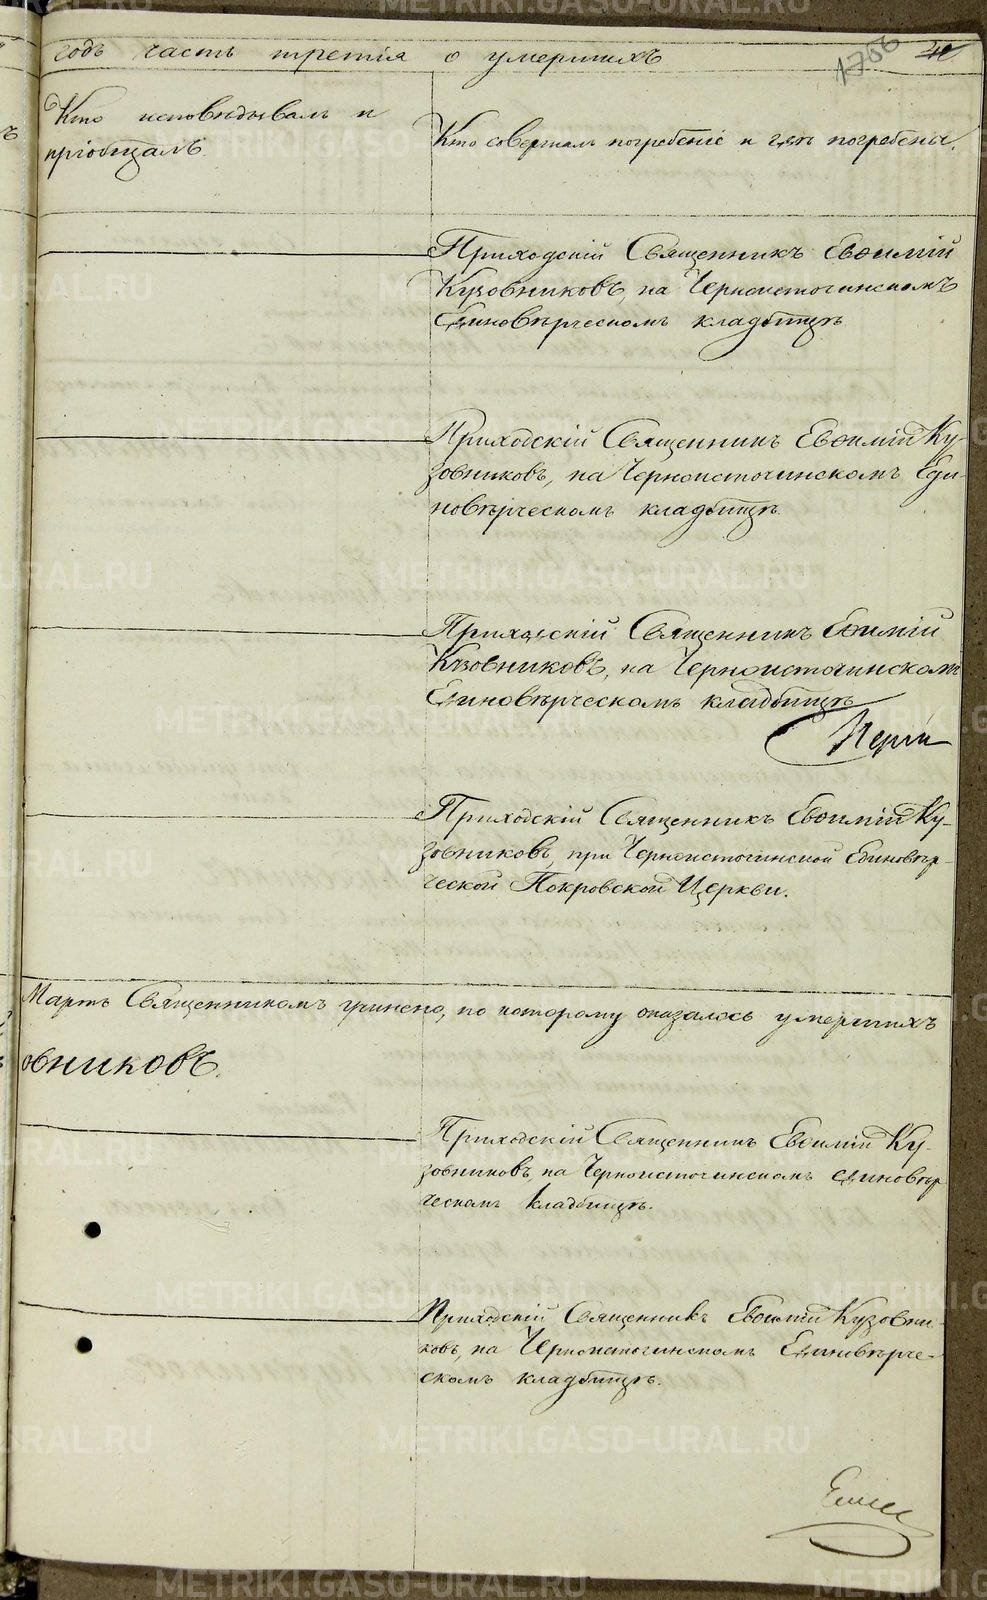 годъ часть третія о умершихъ
1756
Кто исповѣдывалъ и
пріобщалъ.
Кто совершалъ погребеніе и гдѣ погребены.
Приходскій Священникъ Евѳимій
Кузовниковъ, на Черноисточинскомъ
Единовѣрческомъ кладбищѣ
Приходскій Священникъ Евѳимій Ку-
зовниковъ, на Черноисточинскомъ Еди-
новѣрческомъ кладбищѣ.
Приходскій Священникъ Евѳимій
Кузовниковъ, на Черноисточинскомъ
Единовѣрческомъ кладбищѣ
Приходскій Священникъ Евѳимій Ку-
зовниковъ, при Черноисточинской Единовѣр-
ческой Покровской Церкви.
Мартъ Священникомъ учинено, по которому оказалось умершихъ
овниковъ.
Приходскій Священникъ Евѳимій Ку-
зовниковъ, на Черноисточинскомъ единовѣр
ческомъ кладбищѣ.
Приходскій Священникъ Евѳимій Кузовни-
ковъ, на Черноисточинскомъ Единовѣрче-
скомъ кладбищѣ.
METRIKI.GASO-URAL.RU